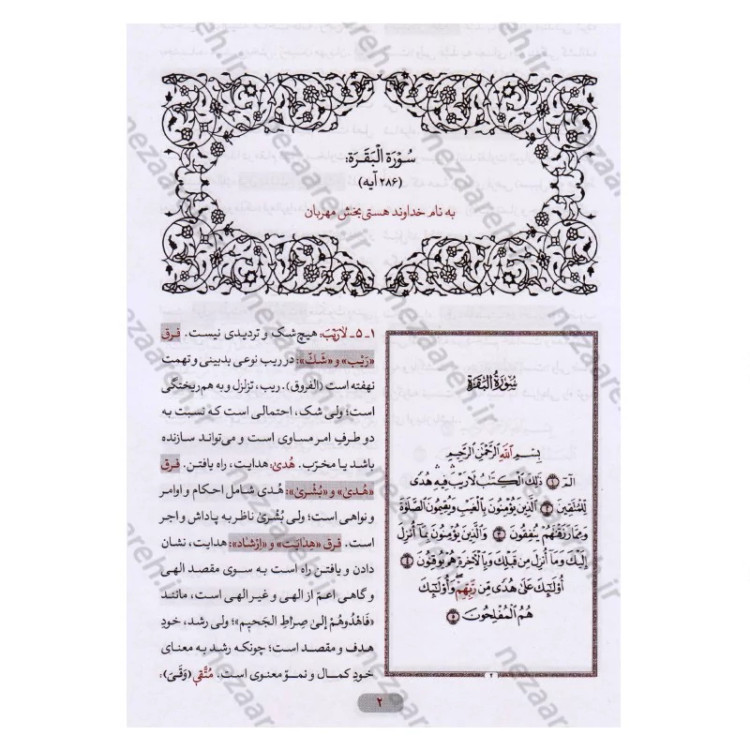 سُورَةُ الْبَقَرَة:
(۲۸۶ آیه)
به نام خداوند هستی‌بخش مهربان
۱ـ۵ـ لارَیْبَ: هیچ شک و تردیدی نیست. فرق
«رَیْب» و «شَکّ»: در ریب نوعی بدبینی و تهمت
نهفته است (الفروق). ریب، تزلزل و به هم ریختگی
است؛ ولی شک، احتمالی است که نسبت به
دو طرفِ امر مساوی است و می‌تواند سازنده
باشد یا مخرّب. هُدیً: هدایت، راه یافتن. فرق
«هُدیً» و «بُشْریٰ»: هُدی شامل احکام و اوامر
و نواهی است؛ ولی بُشْریٰ ناظر به پاداش و اجر
است. فرق «هِدایَت» و «اِرْشاد»: هدایت، نشان
دادن و یافتن راه است به سوی مقصد الهی
و گاهی اعمّ از الهی و غیر الهی است، مانند
«فَاهْدُوهُمْ إِلیٰ صِرَاطِ الْجَحیمِ»؛ ولی رشد، خودِ
هدف و مقصد است؛ چونکه رشد به معنای
خودِ کمال و نموّ معنوی است. مُتَّقي (وَقَیَ):
سُورَةُ الْبَقَرَةِ
بِسْمِ اللَّهِ الرَّحْمَٰنِ الرَّحِيمِ
الٓمٓ ﴿۱﴾ ذَٰلِكَ الْكِتَٰبُ لَا رَيْبَ ۛ فِيهِ ۛ هُدًى
لِّلْمُتَّقِينَ ﴿۲﴾ الَّذِينَ يُؤْمِنُونَ بِالْغَيْبِ وَيُقِيمُونَ الصَّلَوٰةَ
وَمِمَّا رَزَقْنَٰهُمْ يُنفِقُونَ ﴿۳﴾ وَالَّذِينَ يُؤْمِنُونَ بِمَآ أُنزِلَ
إِلَيْكَ وَمَآ أُنزِلَ مِن قَبْلِكَ وَبِالْآخِرَةِ هُمْ يُوقِنُونَ ﴿۴﴾
أُوْلَٰٓئِكَ عَلَىٰ هُدًى مِّن رَّبِّهِمْ ۖ وَأُوْلَٰٓئِكَ
هُمُ الْمُفْلِحُونَ ﴿۵﴾
۲
۲
nezaareh.ir